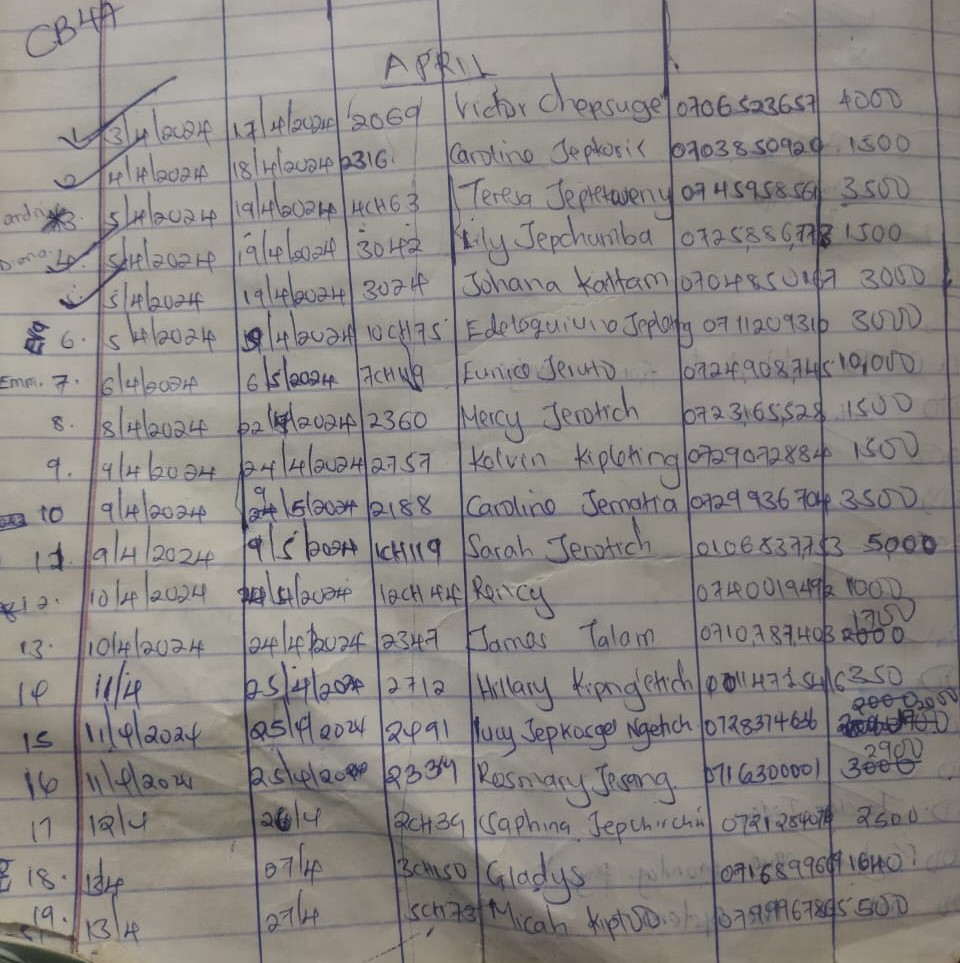 CB4A
APRIL
3/4/2024 17/4/2024 2069 Victor Chepsuge 0706523657 4000
4/4/2024 18/4/2024 2316 Caroline Jepkosic 0703850920 1500
3. 5/4/2024 19/4/2024 4CH63 Teresa 0745958561 3500
4. 5/4/2024 19/4/2024 3042 Lily Jepchumba 0725886778 1500
5/4/2024 19/4/2024 3024 Johana Kattam 0704850167 3000
6. 5/4/2024 9/4/2024 10CH75 0711209310 3000
Emm. 7. 6/4/2024 6/5/2024 Eunice Jeruto 0724908745 10,000
8. 8/4/2024 2360 Mercy Jerotich 0723165528 1500
9. 9/4/2024 24/4/2024 2757 Kelvin Kipleting 0729072884 1500
10 9/4/2024 9/5/2024 2188 Caroline 0729936704 3500
11. 9/4/2024 9/5/2024 1CH119 Sarah Jerotich 0106837753 5000
12. 10/4/2024 12CH44 Rency 0740019492 1000
13. 10/4/2024 24/4/2024 2347 James Talam 0710787403 1750
14 11/4 25/4/2024 2712 Hillary Kipngetich 6350
15 11/4/2024 25/4/2024 2491 Lucy Jepkosgei Ngetich 0728374656
16 11/4/2024 25/4/2024 2334 Rosmary Jesang. 0716300001 2900
17 12/4 26/4 2CH34 Saphina Jepchirchir 2500
18. 13/4 07/4 3CH50 Gladys 1640
19. 13/4 27/4 5CH73 Micah 500